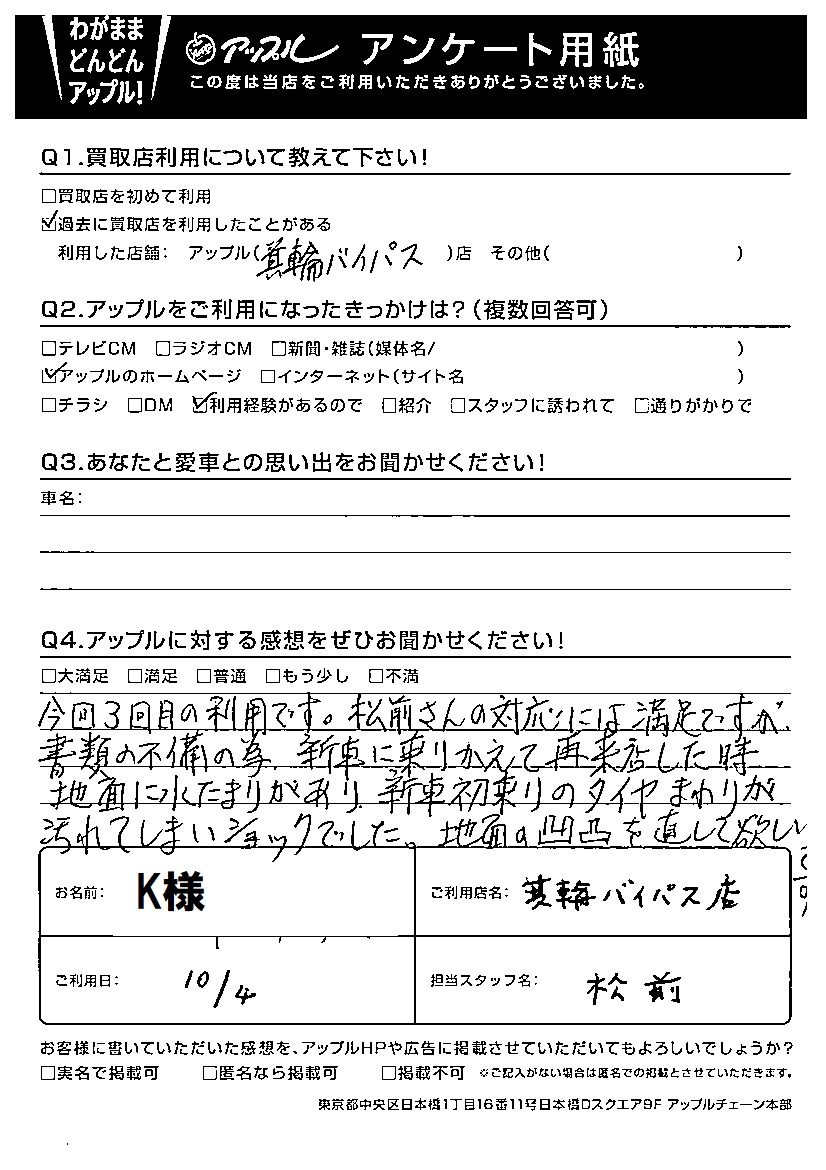 わがまま
どんどん
アップル!
アップル アンケート用紙
この度は当店をご利用いただきありがとうございました。
Q1.買取店利用について教えて下さい!
□買取店を初めて利用
☑過去に買取店を利用したことがある
利用した店舗: アップル(箕輪バイパス )店 その他( )
Q2.アップルをご利用になったきっかけは?(複数回答可)
□テレビCM □ラジオCM □新聞・雑誌(媒体名/ )
☑アップルのホームページ □インターネット(サイト名 )
□チラシ □DM ☑利用経験があるので □紹介 □スタッフに誘われて □通りがかりで
Q3.あなたと愛車との思い出をお聞かせください!
車名:
Q4.アップルに対する感想をぜひお聞かせください!
□大満足 □満足 □普通 □もう少し □不満
今回3回目の利用です。松前さんの対応には満足ですが、
書類の不備の為、新車に乗りかえて再来店した時
地面に水たまりがあり、新車初乗りのタイヤまわりが
汚れてしまいショックでした。地面の凹凸を直して欲しい
お名前: K様
ご利用店名: 箕輪バイパス店
ご利用日: 10/4
担当スタッフ名: 松前
お客様に書いていただいた感想を、アップルHPや広告に掲載させていただいてもよろしいでしょうか?
□実名で掲載可 □匿名なら掲載可 □掲載不可 ※ご記入がない場合は匿名での掲載とさせていただきます。
東京都中央区日本橋1丁目16番11号日本橋Dスクエア9F アップルチェーン本部